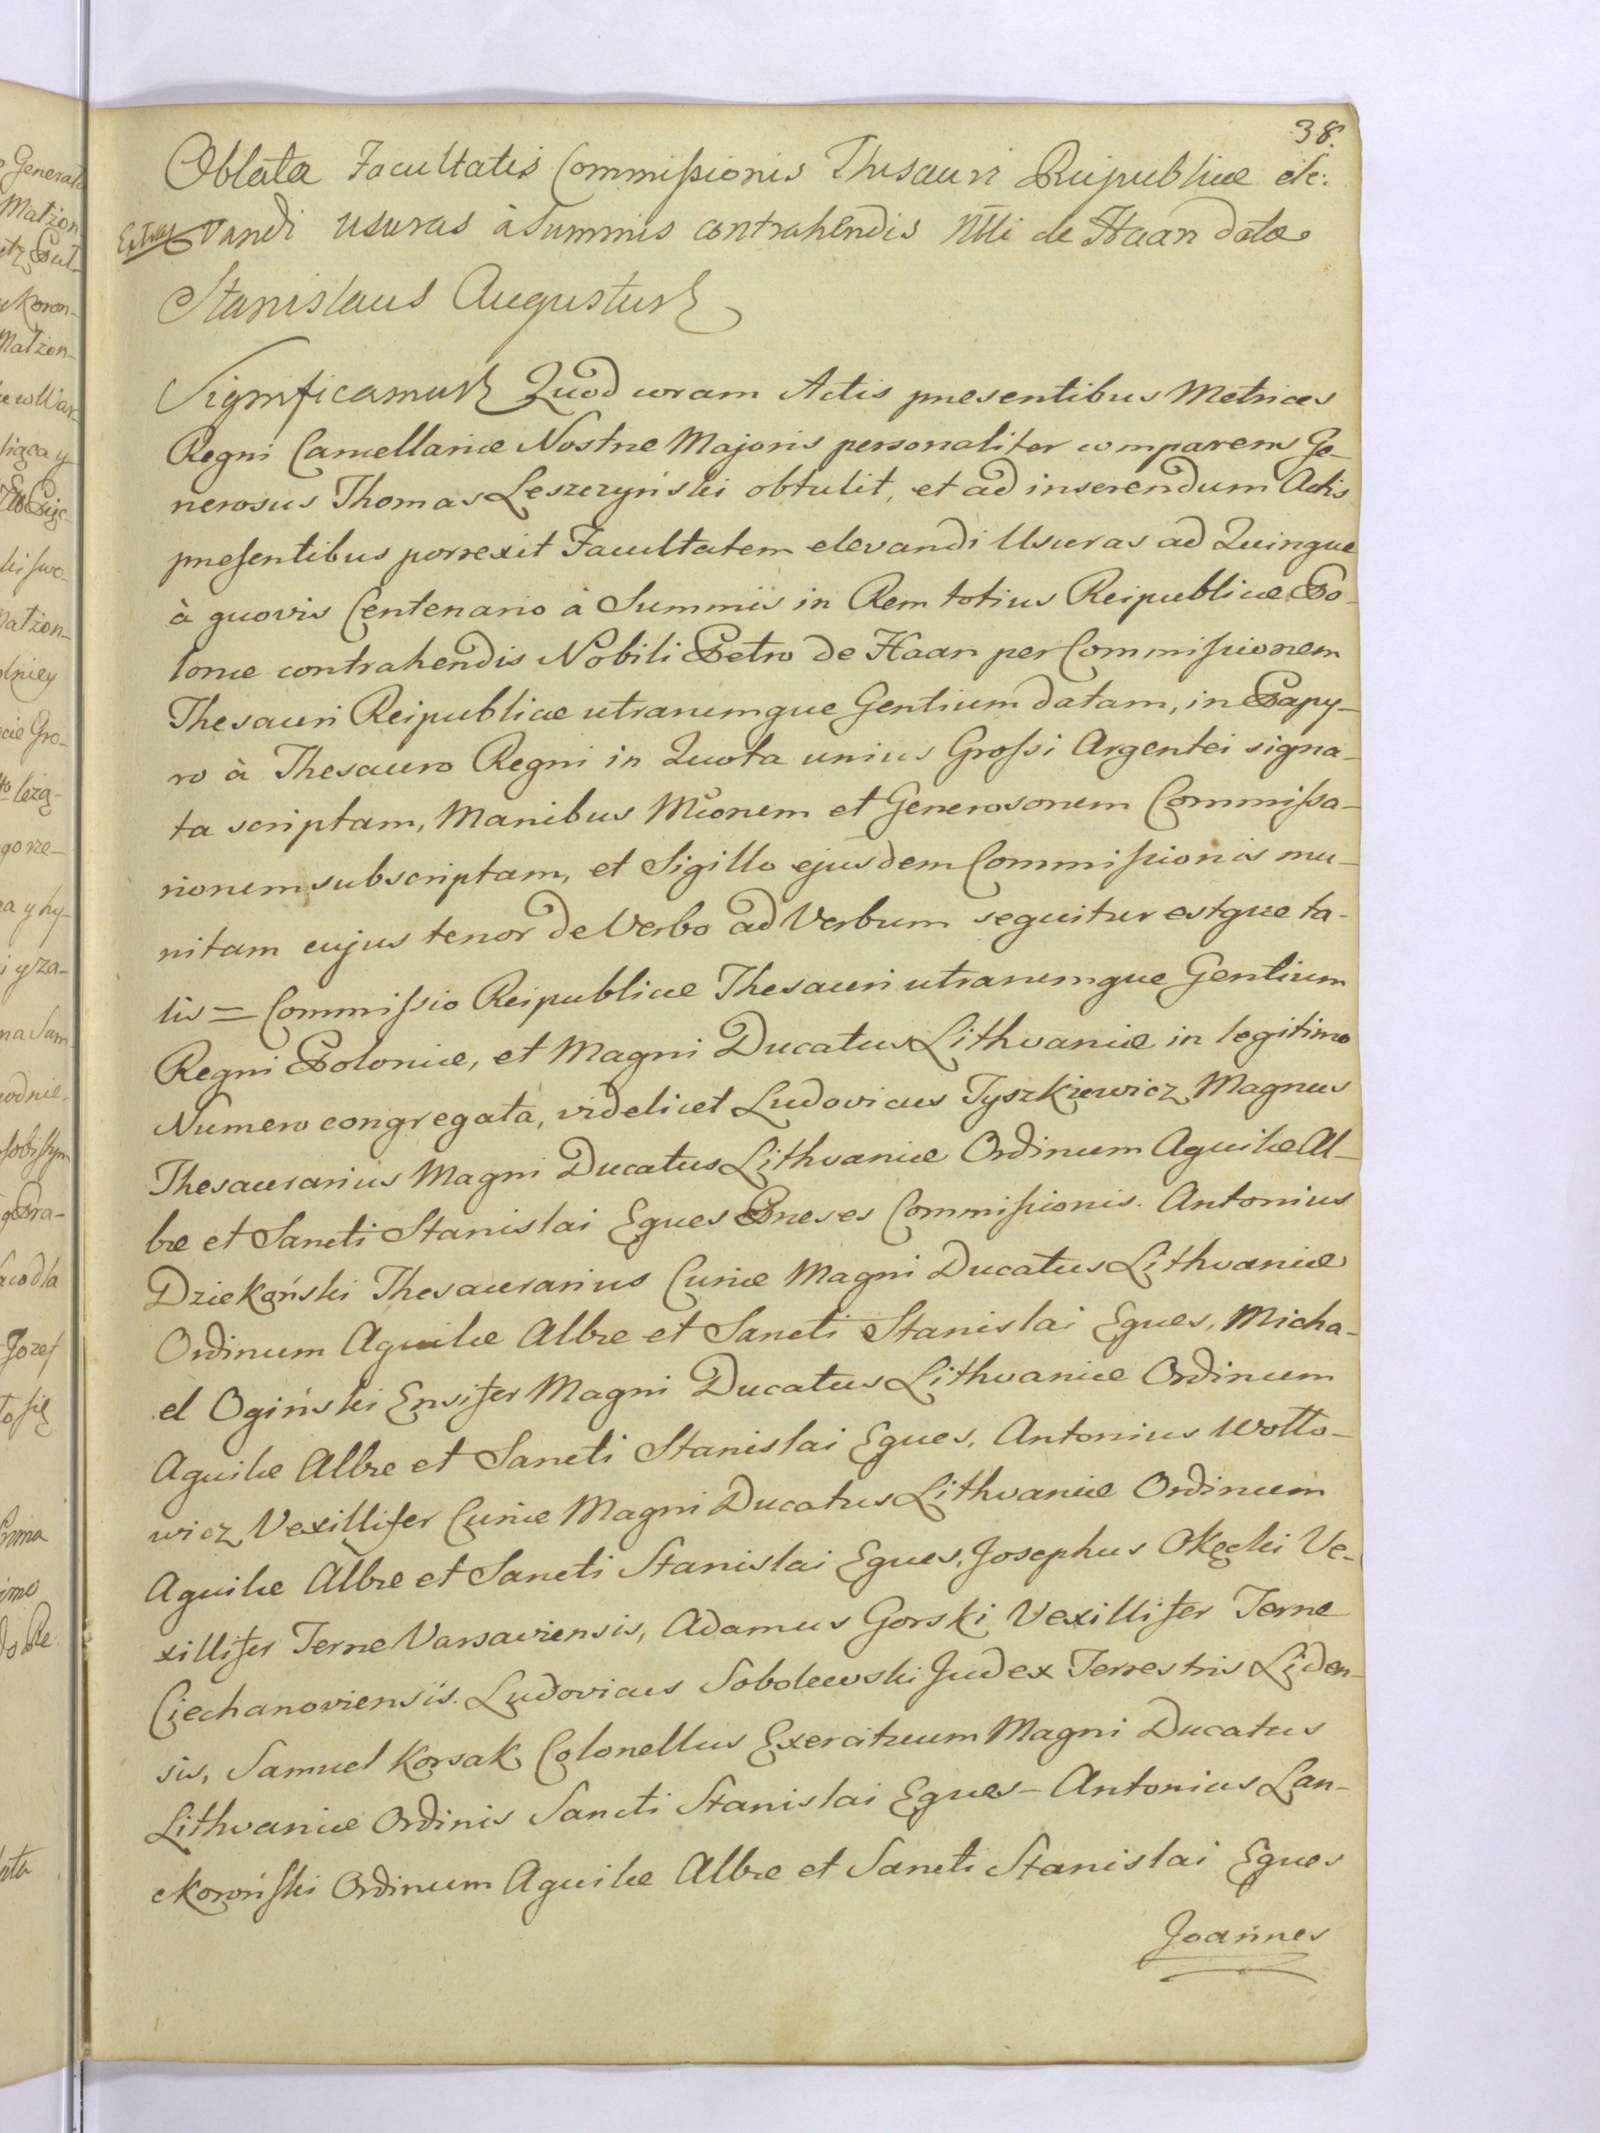 38.
Oblata Facultatis Commissionis Thesauri Reipublicæ ele:
vandi usuras à summis contrahendis Nlli de Haan datæ
Stanislaus Augustus
Significamus Quod coram Actis præsentibus Metrices
Regni Cancellariæ Nostræ Majoris personaliter comparens Ge-
nerosus Thomas Leszczyński obtulit, et ad inserendum Actis
præsentibus porrexit Facultatem elevandi Usuras ad Quinque
à quovis Centenario à Summis in Rem totius Reipublicæ Po-
loniæ contrahendis Nobili Petro de Haan per Commissionem
Thesauri Reipublicæ utrarumque Gentium datam, in Papy-
ro à Thesauro Regni in Quota unius Grossi Argentei signa-
ta scriptam, Manibus Mcorum et Generosorum Commissa-
riorum subscriptam, et Sigillo ejusdem Commissionis mu-
nitam cujus tenor de Verbo ad Verbum sequitur estque ta-
lis = Commissio Reipublicæ Thesauri utrarumque Gentium
Regni Poloniæ, et Magni Ducatus Lithvaniæ in legitimo
Numero congregata, videlicet Ludovicus Tyszkiewicz Magnus
Thesaurarius Magni Ducatus Lithvaniæ Ordinum Aquilæ Al-
bæ et Sancti Stanislai Eques Præses Commissionis. Antonius
Dziekoński Thesaurarius Curiæ Magni Ducatus Lithvaniæ
Ordinum Aquilæ Albæ et Sancti Stanislai Eques, Micha-
el Ogiński Ensifer Magni Ducatus Lithvaniæ Ordinum
Aquilæ Albæ et Sancti Stanislai Eques, Antonius Wołło-
wicz Vexillifer Curiæ Magni Ducatus Lithvaniæ Ordinum
Aquilæ Albæ et Sancti Stanislai Eques, Josephus Okęcki Ve-
xillifer Terræ Varsaviensis, Adamus Gorski Vexillifer Terræ
Ciechanoviensis. Ludovicus Sobolewski Judex Terrestris Liden-
sis, Samuel Korsak Colonellus Exercituum Magni Ducatus
Lithvaniæ Ordinis Sancti Stanislai Eques - Antonius Lan-
ckoroński Ordinum Aquilæ Albæ et Sancti Stanislai Eques
Joannes